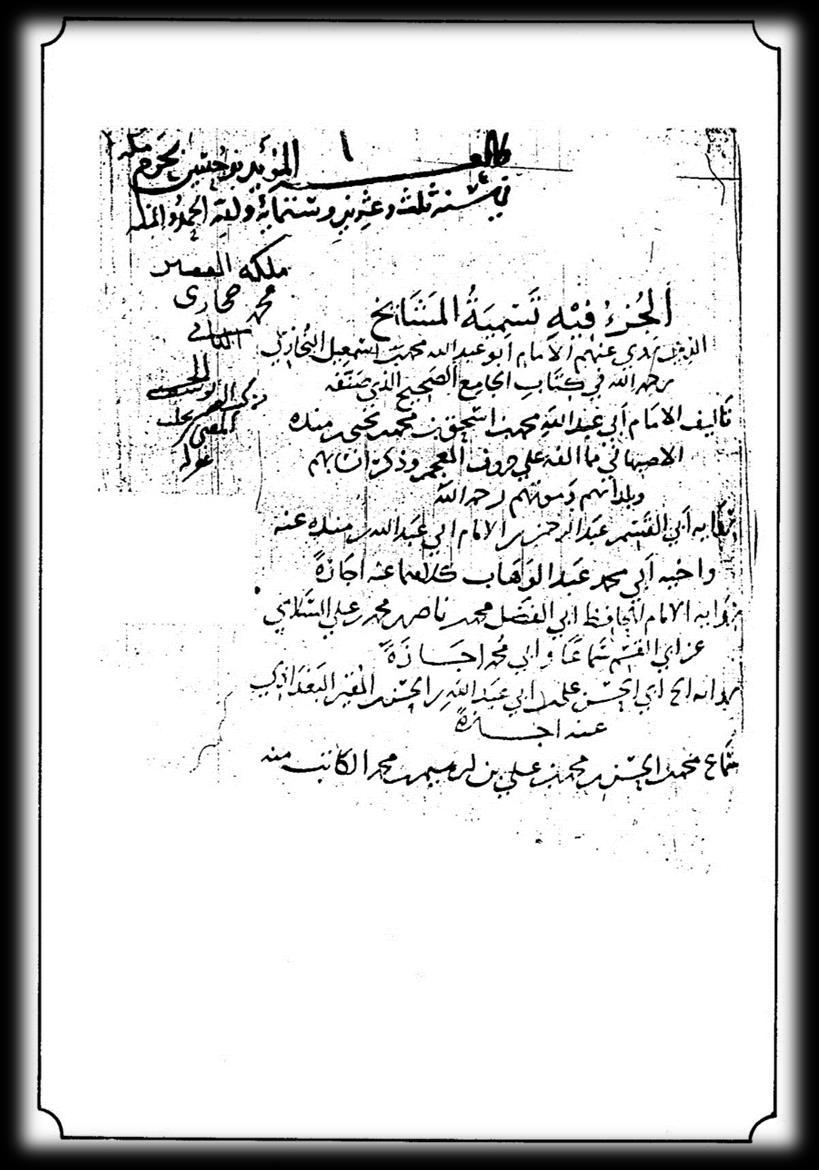 طالعه المؤيد بن حنين بحرم مكة
في سنة ثلث وعشرين وستمائة ولله الحمد والمنة
ملكه الفقير
محمد حجازي
الجزء فيه تسمية المشايخ
الذين يروي عنهم الإمام أبو عبد الله محمد بن اسمعيل البخاري
رحمه الله في كتاب الجامع الصحيح الذي صنفه
تأليف الامام أبي عبد الله محمد بن اسحق بن محمد بن يحيى بن منده
الاصبهاني مما الفه على حروف المعجم وذكر أنسابهم
وبلدانهم وموتهم رحمه الله
رواية أبي القسم عبد الرحمن بن الامام أبي عبد الله بن منده عنه
واخيه أبي محمد عبد الوهاب كلاهما عنه اجازة
رواية الامام الحافظ أبي الفضل محمد بن ناصر بن محمد بن علي السلامي
عن أبي القسم سماعا وأبي محمد اجازة
رواية أبي الحسن علي بن أبي عبد الله بن الحسن بن المقير البغدادي
عنه اجازة
سماع محمد بن الحسن بن محمد بن علي بن ابرهيم بن محمد الكاتب منه